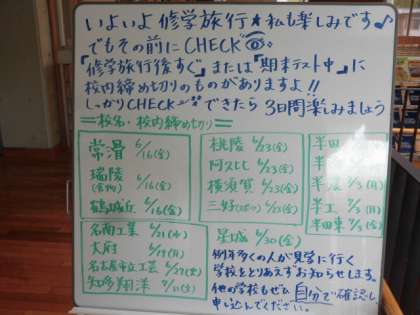 いよいよ修学旅行★私も楽しみです♪
でもその前にCHECK
『修学旅行後すぐ』または『期末テスト中』に
校内締め切りのものがありますよ!!
しっかりCHECKできたら3日間楽しみましょう
=校名・校内締め切り=
常滑 6/16(金)
瑞陵 6/16(金)
(食物)
鶴城丘 6/16(金)
桃陵 6/23(金)
阿久比 6/23(金)
横須賀 6/23(金)
三好(スポーツ) 6/23(金)
半田
半
半 7/3(月)
半工 7/3(月)
半田東 7/3(金)
名南工業 6/21(水)
大府 6/19(月)
名古屋市立工芸 6/27(火)
知多翔洋 7/11(火)
星城 6/30(金)
例年多くの人が見学に行く
学校をとりあえずお知らせします。
他の学校もぜひ自分で確認し
申し込んでください。